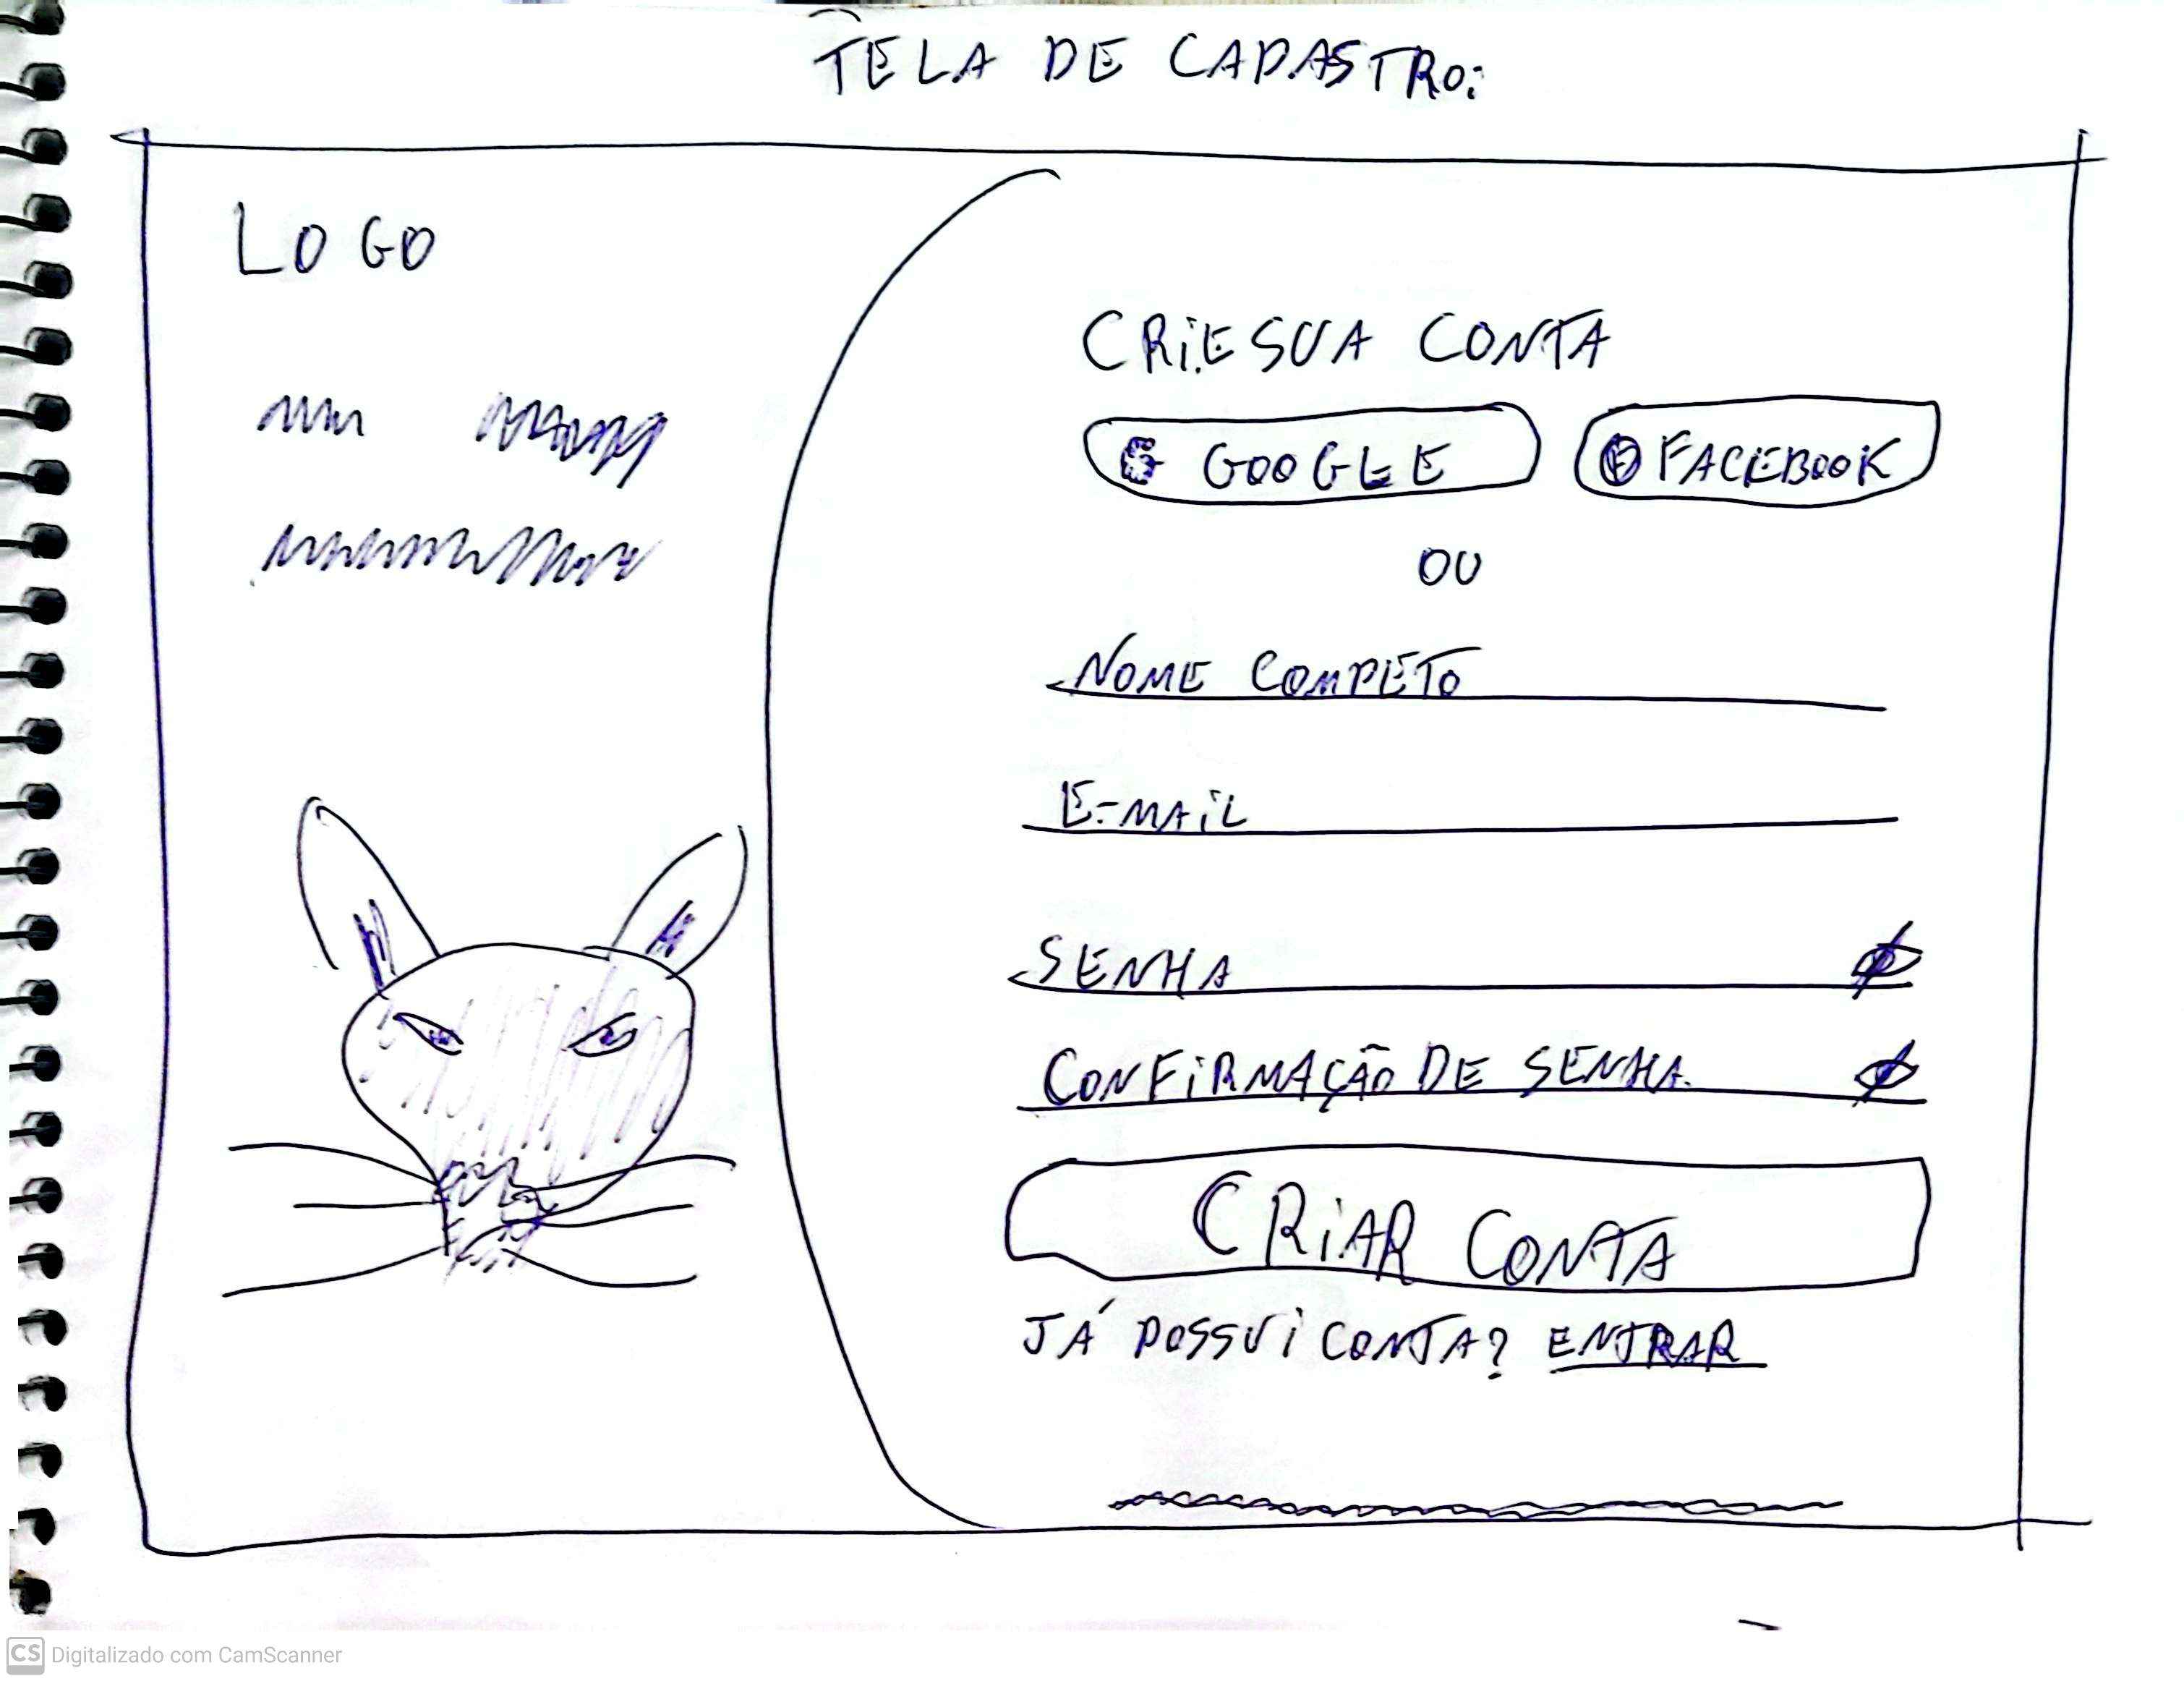 TELA DE CADASTRO:
LOGO
CRIE SUA CONTA
G GOOGLE
F FACEBOOK
OU
NOME COMPETO
E-MAIL
SENHA
CONFIRMAÇÃO DE SENHA
CRIAR CONTA
JÁ POSSUI CONTA? ENTRAR
CS Digitalizado com CamScanner